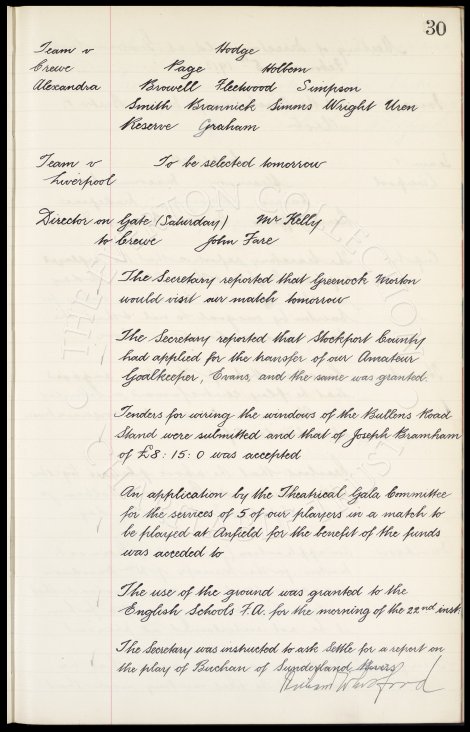 30
Team v Hodge
Crewe Page Holbem
Alexandra Browell Fleetwood Simpson
Smith Brannick Simms Wright Uren
Reserve Graham
Team v To be selected tomorrow
Liverpool
Director on Gate (Saturday) Mr Kelly
to Crewe John Fare
The Secretary reported that Greenock Morton
would visit our match tomorrow
The Secretary reported that Stockport County
had applied for the transfer of our Amateur
Goalkeeper, Evans, and the same was granted.
Tenders for wiring the windows of the Bullens Road
Stand were submitted and that of Joseph Bramham
of £8:15:0 was accepted
An application by the Theatrical Gala Committee
for the services of 5 of our players in a match to
be played at Anfield for the benefit of the funds
was acceded to
The use of the ground was granted to the
English Schools F.A. for the morning of the 22nd inst.
The Secretary was instructed to ask Settle for a report on
the play of Buchan of Sunderland